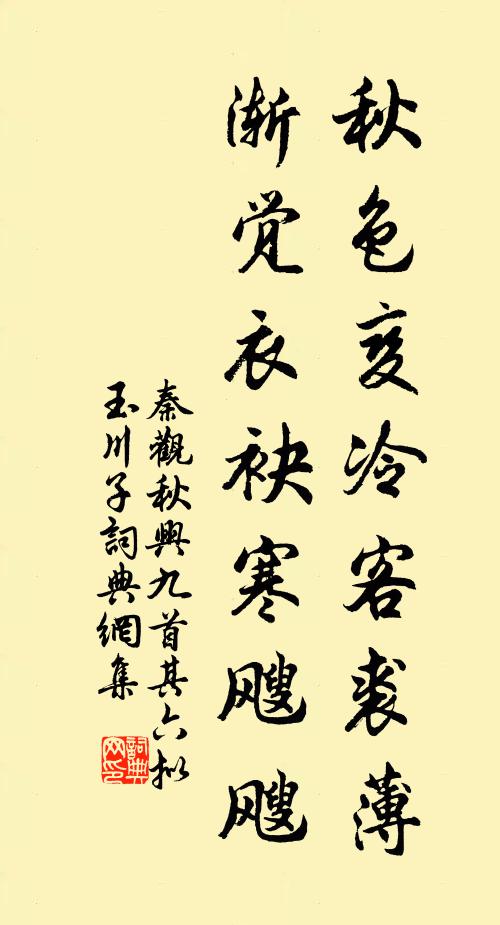 秋色变冷客裘薄
渐觉衣袂寒飕飕
秦觀秋興九首其六拟
玉川子詞典網集
詞典
网印